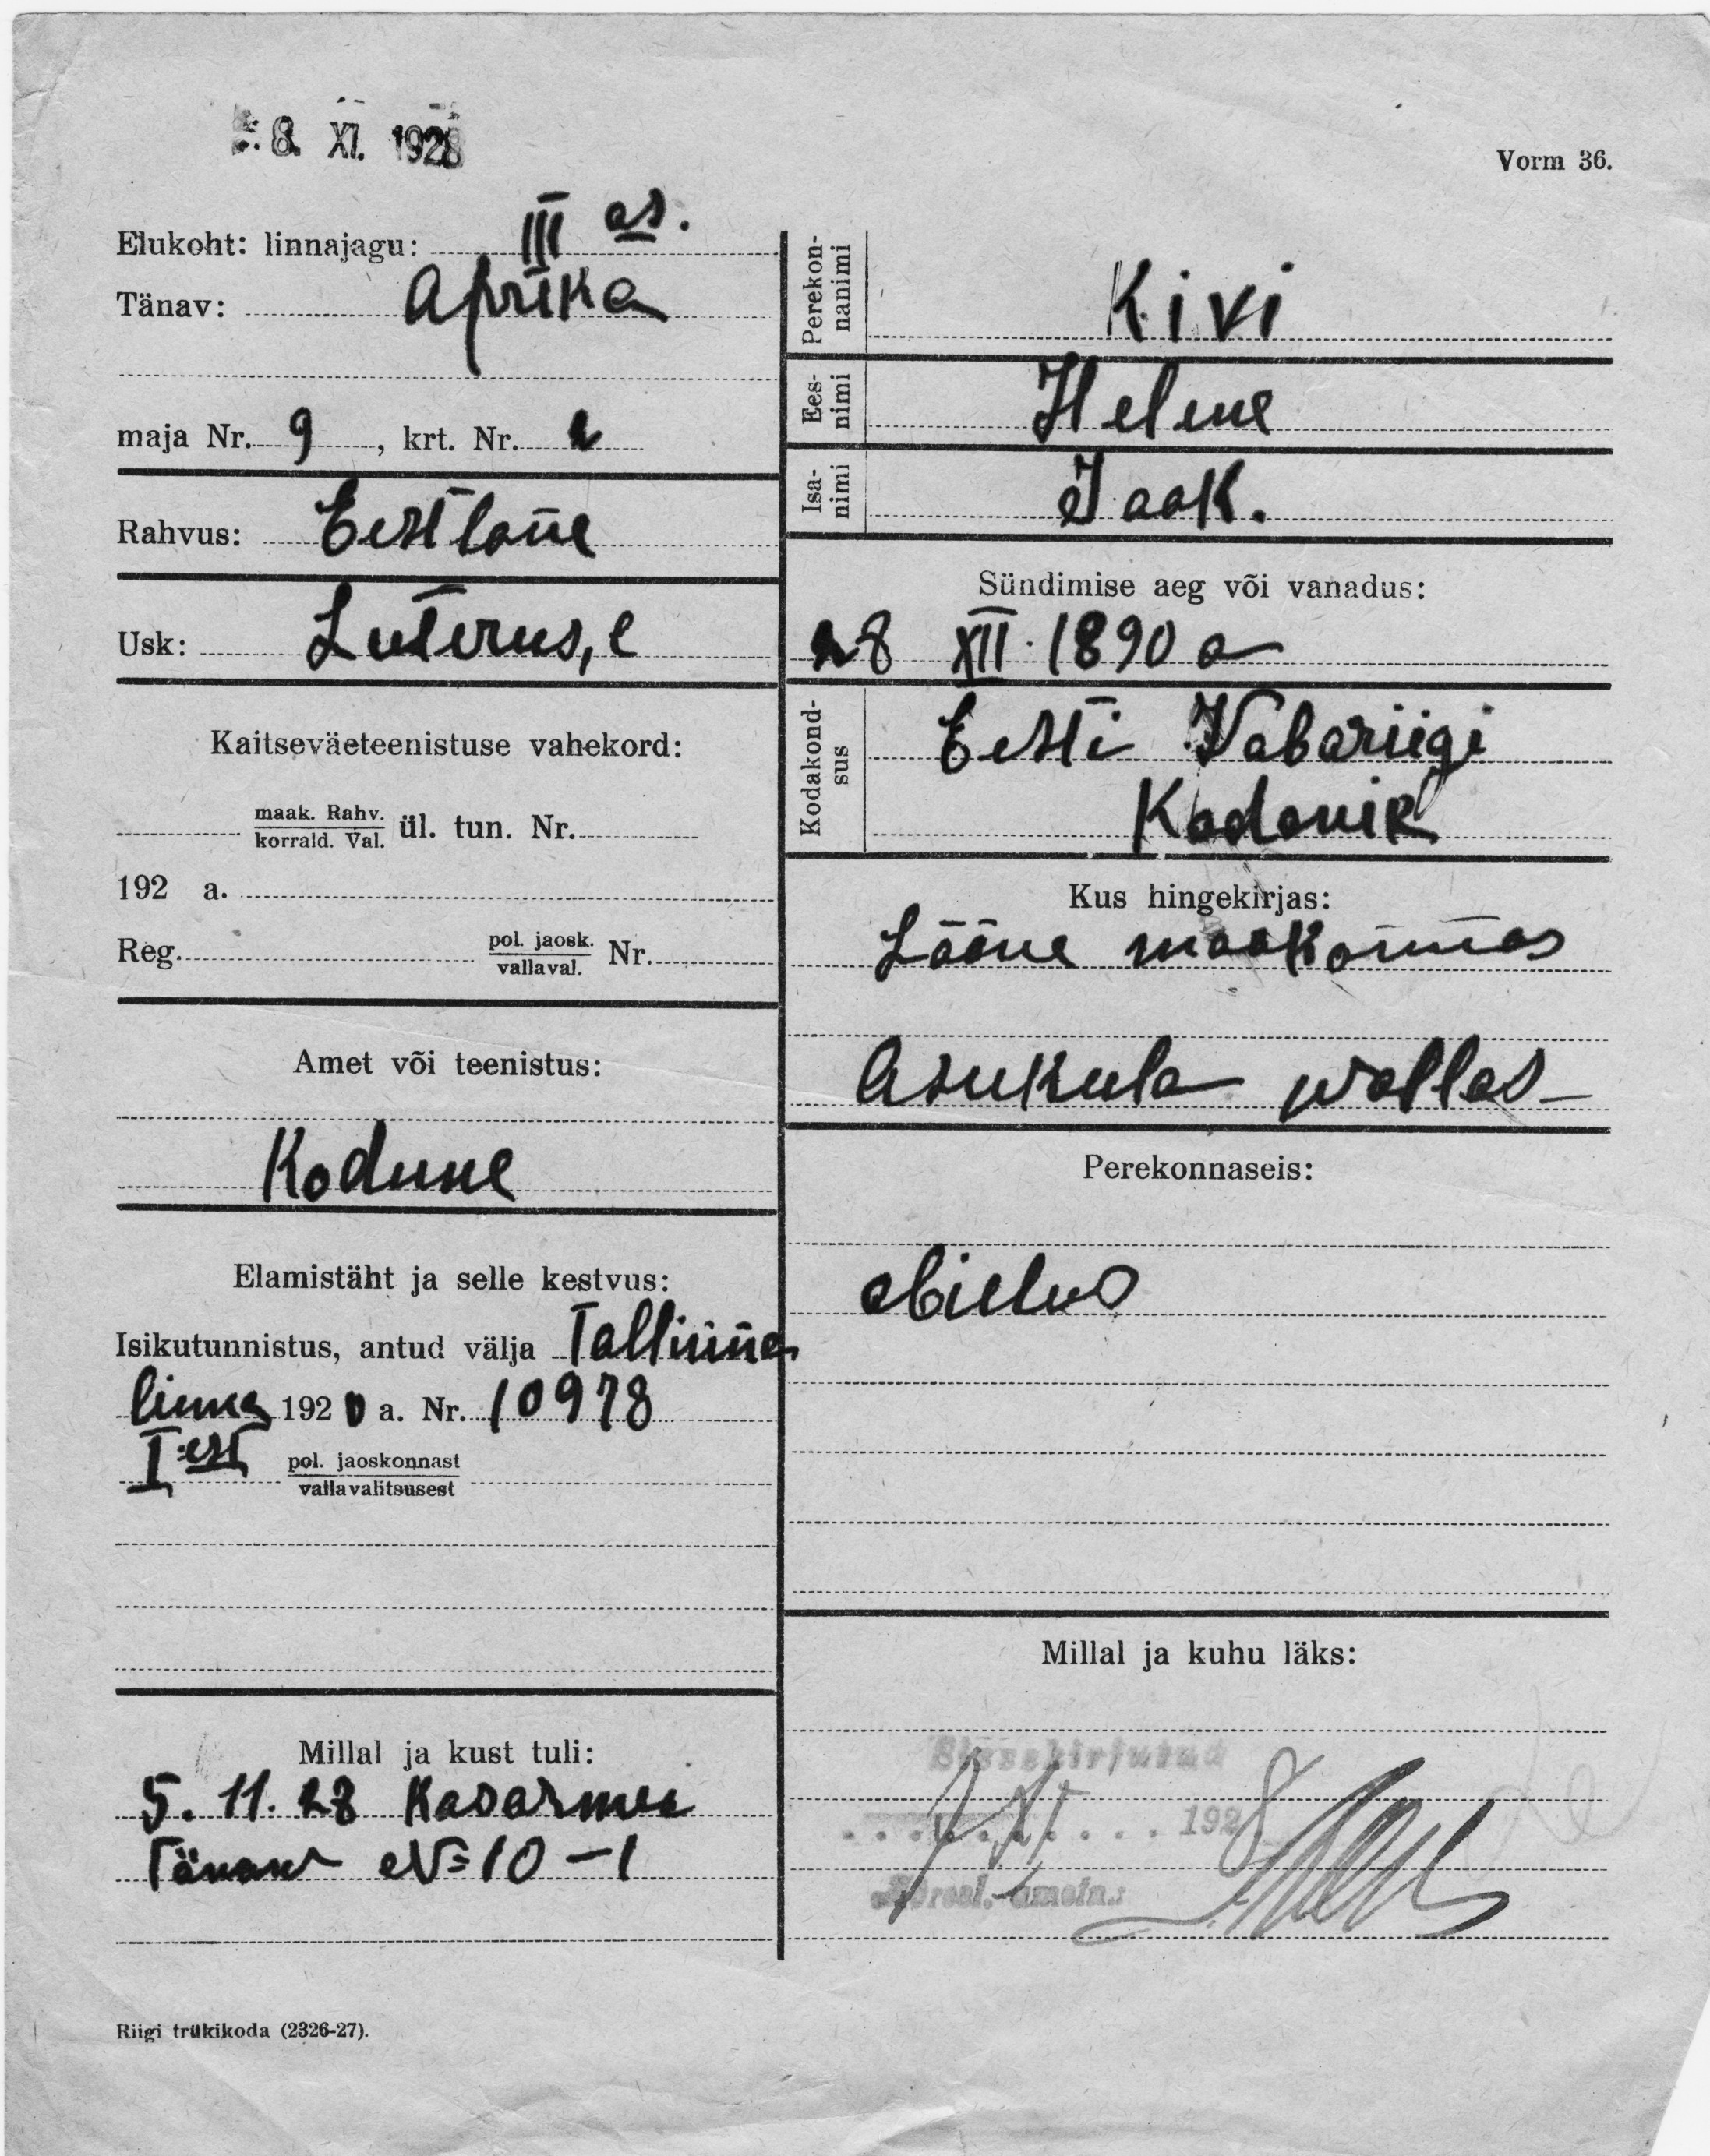 8. XI. 1928
Vorm 36.
Elukoht: linnajagu: III as.
Tänav: Aprika
maja Nr. 9, krt. Nr. 2
Rahvus: Eestlane
Usk: Luterus,e
Kaitseväeteenistuse vahekord:
maak. Rahv.
korrald. Val. ül. tun. Nr.
192 a.
Reg. pol. jaosk.
vallaval. Nr.
Amet või teenistus:
Kodune
Elamistäht ja selle kestvus:
Isikutunnistus, antud välja Tallinna
linna 1920 a. Nr. 10978
I est pol. jaoskonnast
vallavalitsusest
Millal ja kust tuli:
5. 11. 28 Kasarmu
Tänaw № 10 – 1
Riigi trükikoda (2326-27).
Perekon-
nanimi
Kivi
Ees-
nimi
Helene
Isa-
nimi
Jaak.
Sündimise aeg või vanadus:
28 XII. 1890 a
Kodakond-
sus
Eesti Vabariigi
Kodanik
Kus hingekirjas:
Lääne maakonnas
Asukula wallas
Perekonnaseis:
abielus
Millal ja kuhu läks:
Sissekirjutud
7. XI 1928